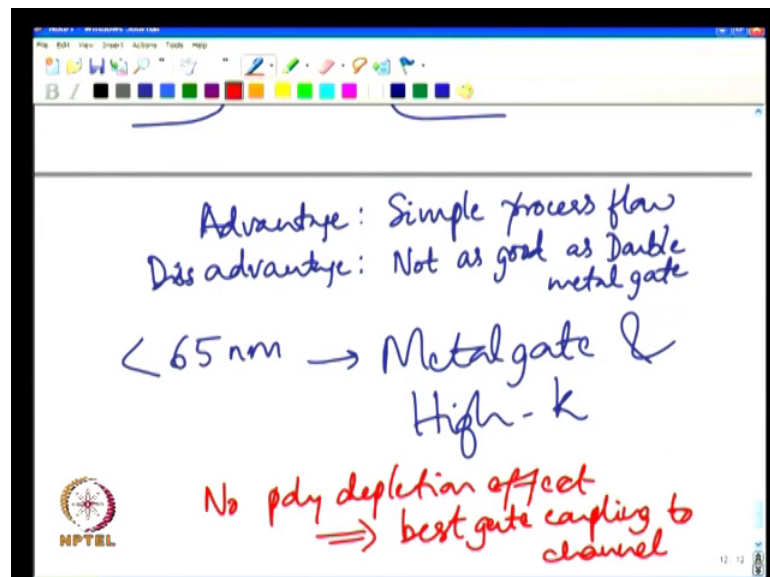 File Edit View Insert Actions Tools Help
B I
Advantage: Simple process flow
Disadvantage: Not as good as Double
metal gate
< 65 nm → Metal gate &
High-k
No poly depletion effect
⇒ best gate coupling to
channel
NPTEL
12/12